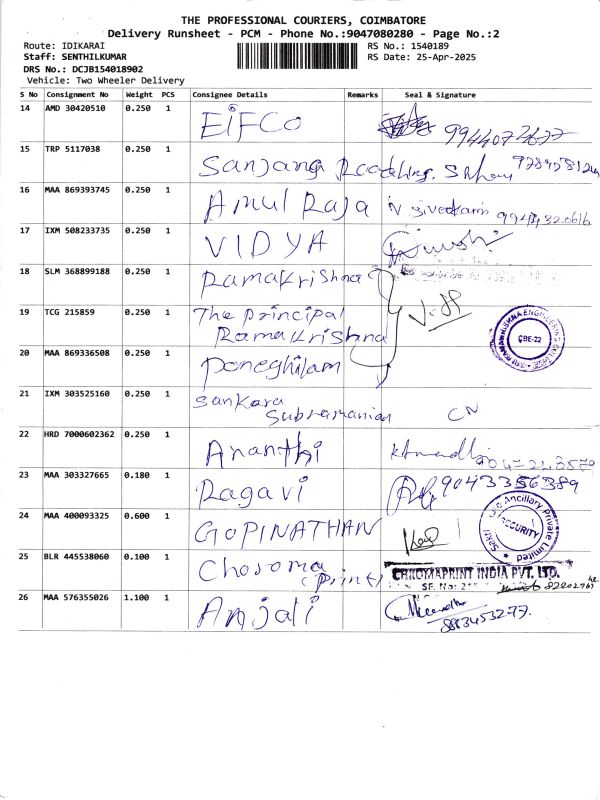 THE PROFESSIONAL COURIERS, COIMBATORE
Delivery Runsheet - PCM - Phone No.:9047080280 - Page No.:2
Route: IDIKARAI RS No.: 1540189
Staff: SENTHILKUMAR RS Date: 25-Apr-2025
DRS No.: DCJB154018902
Vehicle: Two Wheeler Delivery
S No Consignment No Weight PCS Consignee Details Remarks Seal & Signature
14 AMD 30420510 0.250 1 EIFCO 9944072677
15 TRP 5117038 0.250 1 Sanjana
16 MAA 869393745 0.250 1 Amul Raja
17 IXM 508233735 0.250 1 VIDYA
18 SLM 368899188 0.250 1 Ramakrishna
19 TCG 215859 0.250 1 The principal
Ramakrishna
SRI RAMAKRISHNA ENGINEERING COLLEGE CBE-22
20 MAA 869336508 0.250 1
21 IXM 303525160 0.250 1 Sankara
Subramanian CN
22 HRD 7000602362 0.250 1 Ananthi 9047213579
23 MAA 303327665 0.180 1 Ragavi 9043356389
24 MAA 400093325 0.600 1 GOPINATHAN
Ancillary Private Limited SECURITY
25 BLR 445538060 0.100 1 Choroma
(Print)
CHROMAPRINT INDIA PVT. LTD.
SF. No:
26 MAA 576355026 1.100 1 Anjali
8883453277